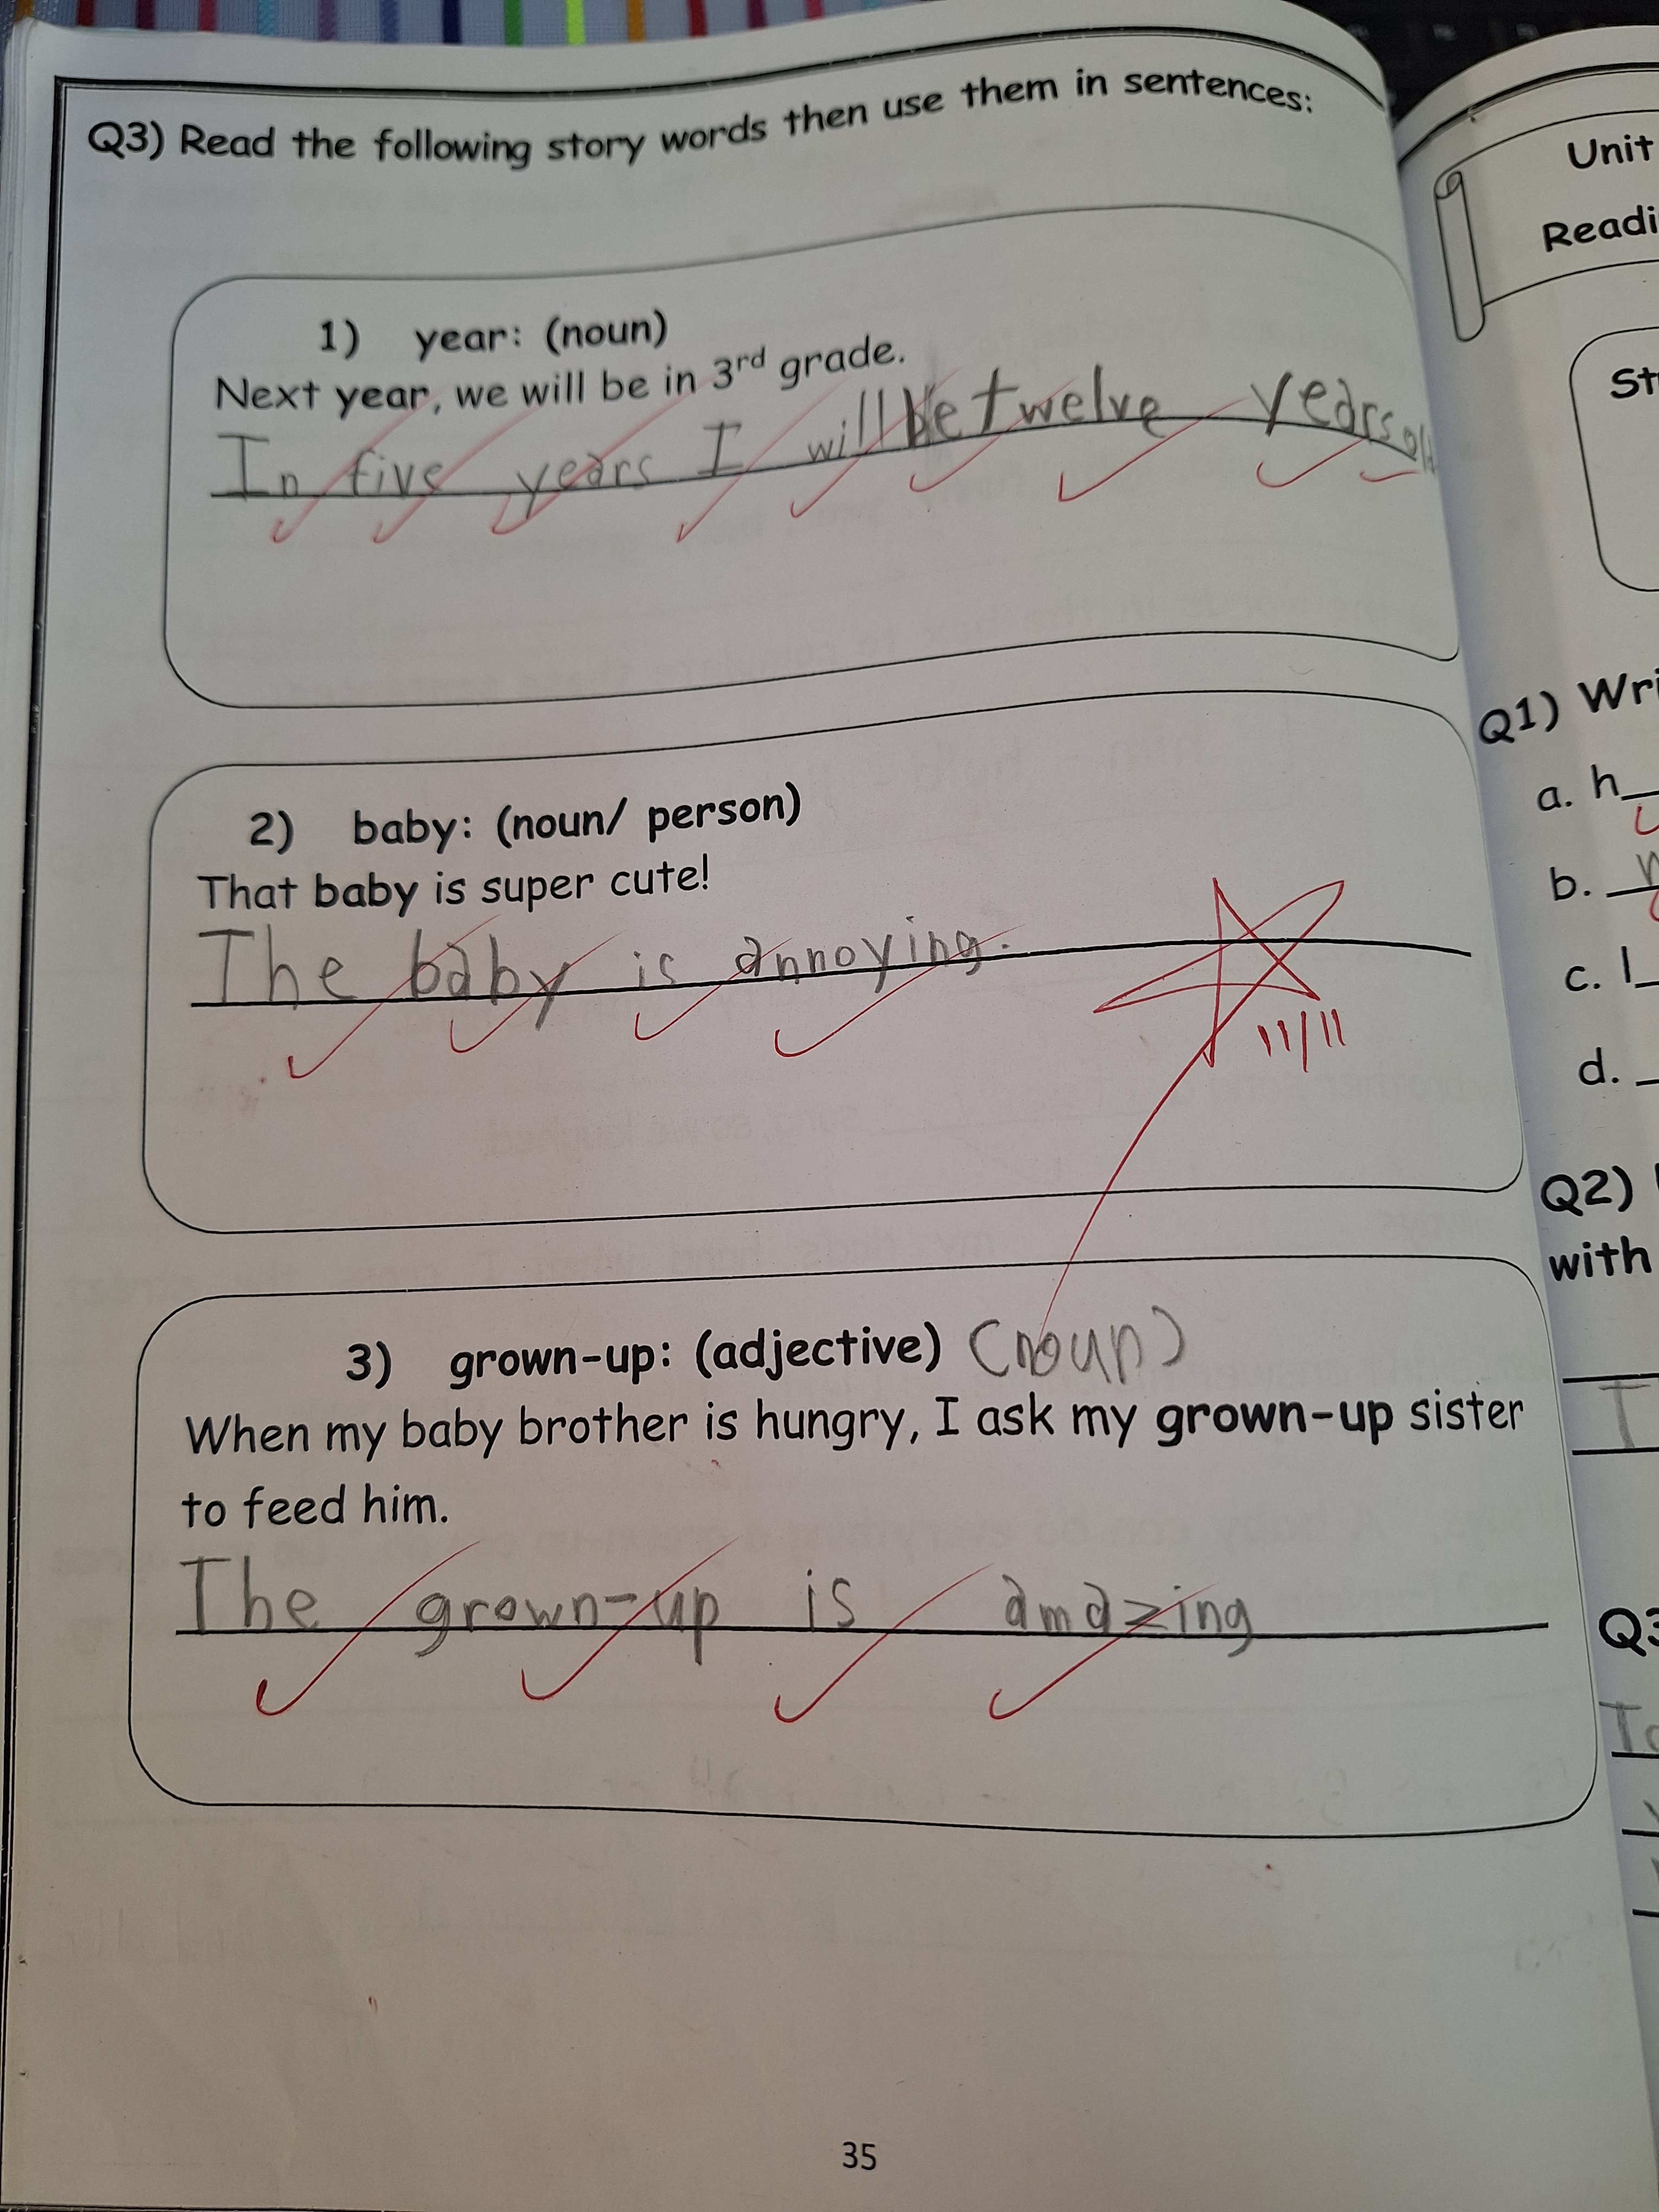 Q3) Read the following story words then use them in sentences:
1) year: (noun)
Next year, we will be in 3rd grade.
In five years I will be twelve years old
2) baby: (noun/ person)
That baby is super cute!
The baby is annoying.
11/11
3) grown-up: (adjective) (noun)
When my baby brother is hungry, I ask my grown-up sister
to feed him.
The grown-up is amazing
35
Unit
Q1)
a. h
b.
c. l
d.
Q2)
with